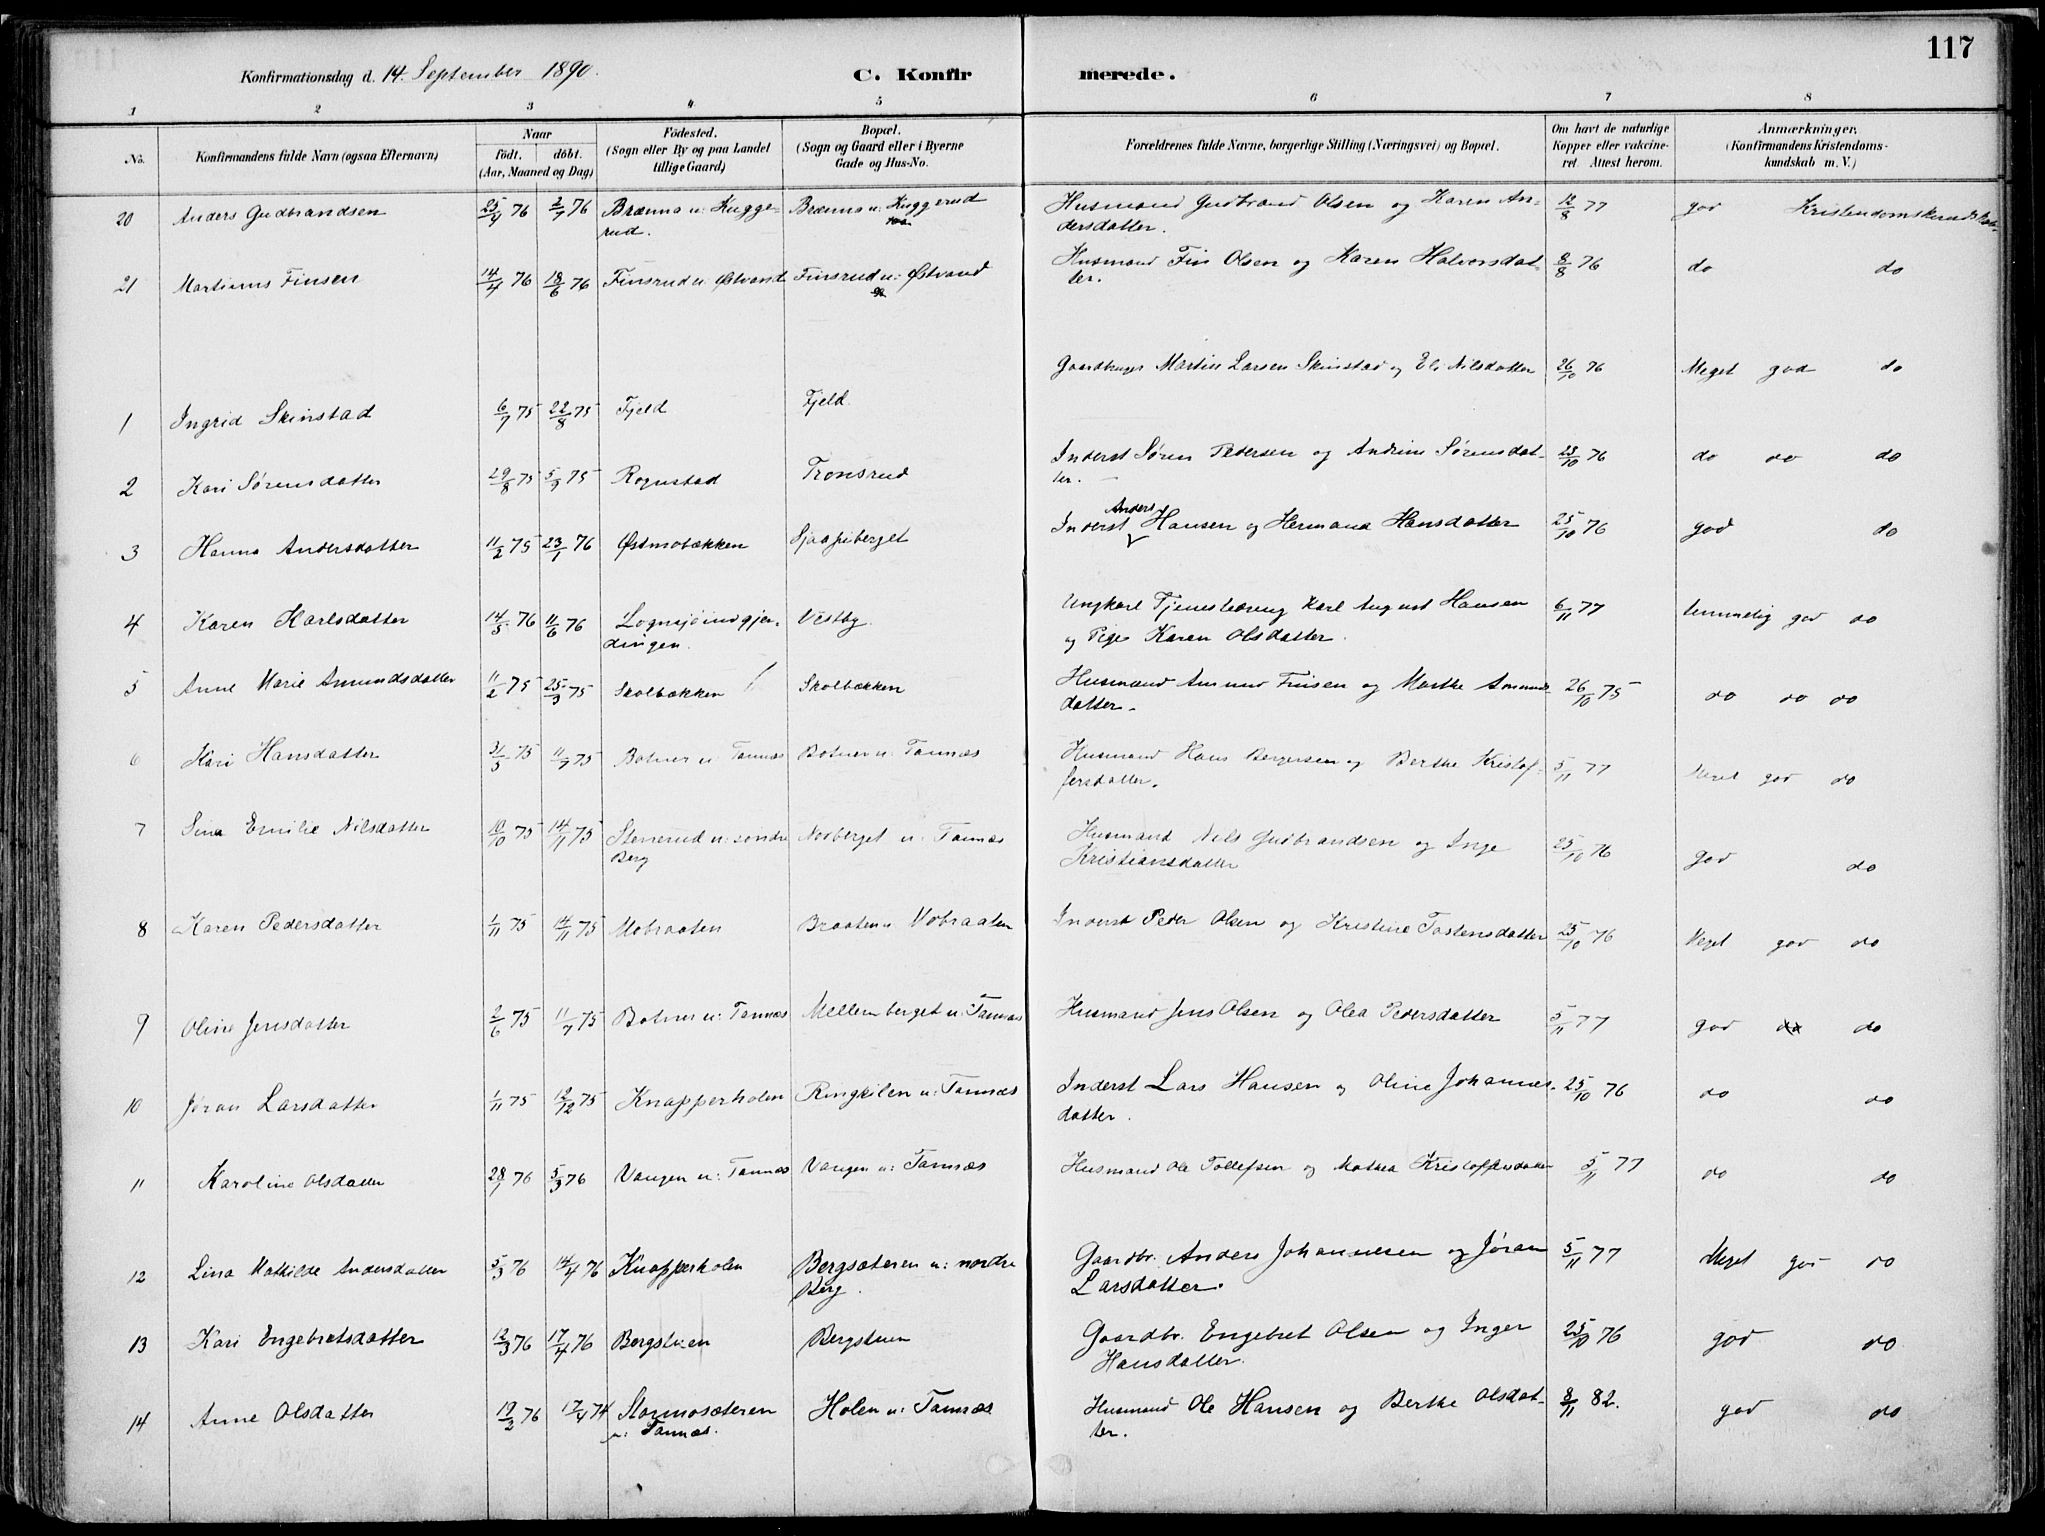 117
Konfirmationsdag d. 14. September 1890.
C. Konfirmerede.
1 2 3 4 5 6 7 8
No.
Konfirmandens fulde Navn (ogsaa Efternavn)
Naar
födt. döbt.
(Aar, Maaned og Dag)
Födested.
(Sogn eller By og paa Landet
tillige Gaard)
Bopæl.
(Sogn og Gaard eller i Byerne
Gade og Hus-No.
Forældrenes fulde Navne, borgerlige Stilling (Næringsvei) og Bopæl.
Om havt de naturlige
Kopper eller vakcine-
ret. Attest herom.
Anmærkninger.
(Konfirmandens Kristendoms-
kundskab m. V.)
20 Anders Gudbrandsen 25/4 76 2/7 76 Brænna u: Kugge- Brænna u: Kuggerud Husmand Gudbrand Olsen og Karen An- 12/8 77 god Kristendomskundskab
rud. dersdatter.
21 Martinus Finsen 14/4 76 18/6 76 Finsrud u: Østvand Finsrud u: Østvand Husmand Fin Olsen og Karen Halvorsdat- 8/8 76 do do
ter.
1 Ingrid Skinstad 6/7 75 22/8 75 Fjeld Fjeld Gaardbruger Martin Larsen Skinstad og Eli Nilsdatter 26/10 76 Meget god do
2 Kari Sørensdatter 29/8 75 5/9 75 Rognstad Tronsrud Inderst Søren Pedersen og Andrine Sørensdat- 23/10 76 do do do
ter.
3 Hanna Andersdatter 11/2 75 23/1 76 Østmobækken Sjaapiberget Inderst Anders Hansen og Hermana Hansdatter 25/10 76 god do
4 Karen Karlsdatter 14/5 76 11/6 76 Lognsjöindgjer- Vestby. Ungkarl Tjenestedreng Karl August Hansen 6/11 77 temmelig god do
dingen. og Pige Karen Olsdatter.
5 Anne Marie Amundsdatter 11/2 75 25/3 75 Skolbækken Skolbækken Husmand Amund Finsen og Marthe Amunds- 26/10 75 do do do
datter.
6 Kari Hansdatter 31/5 75 11/7 75 Botner u: Tannæs Botner u: Tannæs Husmand Hans Bergersen og Berthe Kristof- 5/11 77 Meget god do
fersdatter.
7 Sina Emilie Nilsdatter 10/10 75 14/11 75 Stenerud u: søndre Norberget u: Tannæs Husmand Nils Gudbrandsen og Inge 25/10 76 god do
Berg Kristiansdatter
8 Karen Pedersdatter 1/11 75 14/11 75 Mobraaten Braaten u: Mobraaten Inderst Peder Olsen og Kristine Tostensdatter 25/10 76 Meget god do
9 Oline Jensdatter 2/6 75 11/7 75 Botner u: Tannæs Mellemberget u: Tannæs Husmand Jens Olsen og Olea Pedersdatter 5/11 77 god do
10 Jøran Larsdatter 1/11 75 12/12 75 Knapperholen Ringkilen u: Tannæs Inderst Lars Hansen og Oline Johannes- 25/10 76 do do
datter.
11 Karoline Olsdatter 28/1 76 5/3 76 Vangen u: Tannæs Vangen u: Tannæs Husmand Ole Tollefsen og Mathea Kristoffersdatter 5/11 77 do do
12 Lina Mathilde Andersdatter 5/3 76 14/4 76 Knapperholen Bergsæteren u: nordre Gaardbr. Anders Johannesen og Jøran 5/11 77 Meget god do
Berg. Larsdatter.
13 Kari Engebretsdatter 12/3 76 17/4 76 Bergstuen Bergstuen Gaardbr. Engebret Olsen og Inger 25/10 76 god do
Hansdatter.
14 Anne Olsdatter 19/2 76 17/4 74 Stormosæteren Holen u: Tannæs Husmand Ole Hansen og Berthe Olsdat- 8/11 82. god do
u: Tannæs. ter.